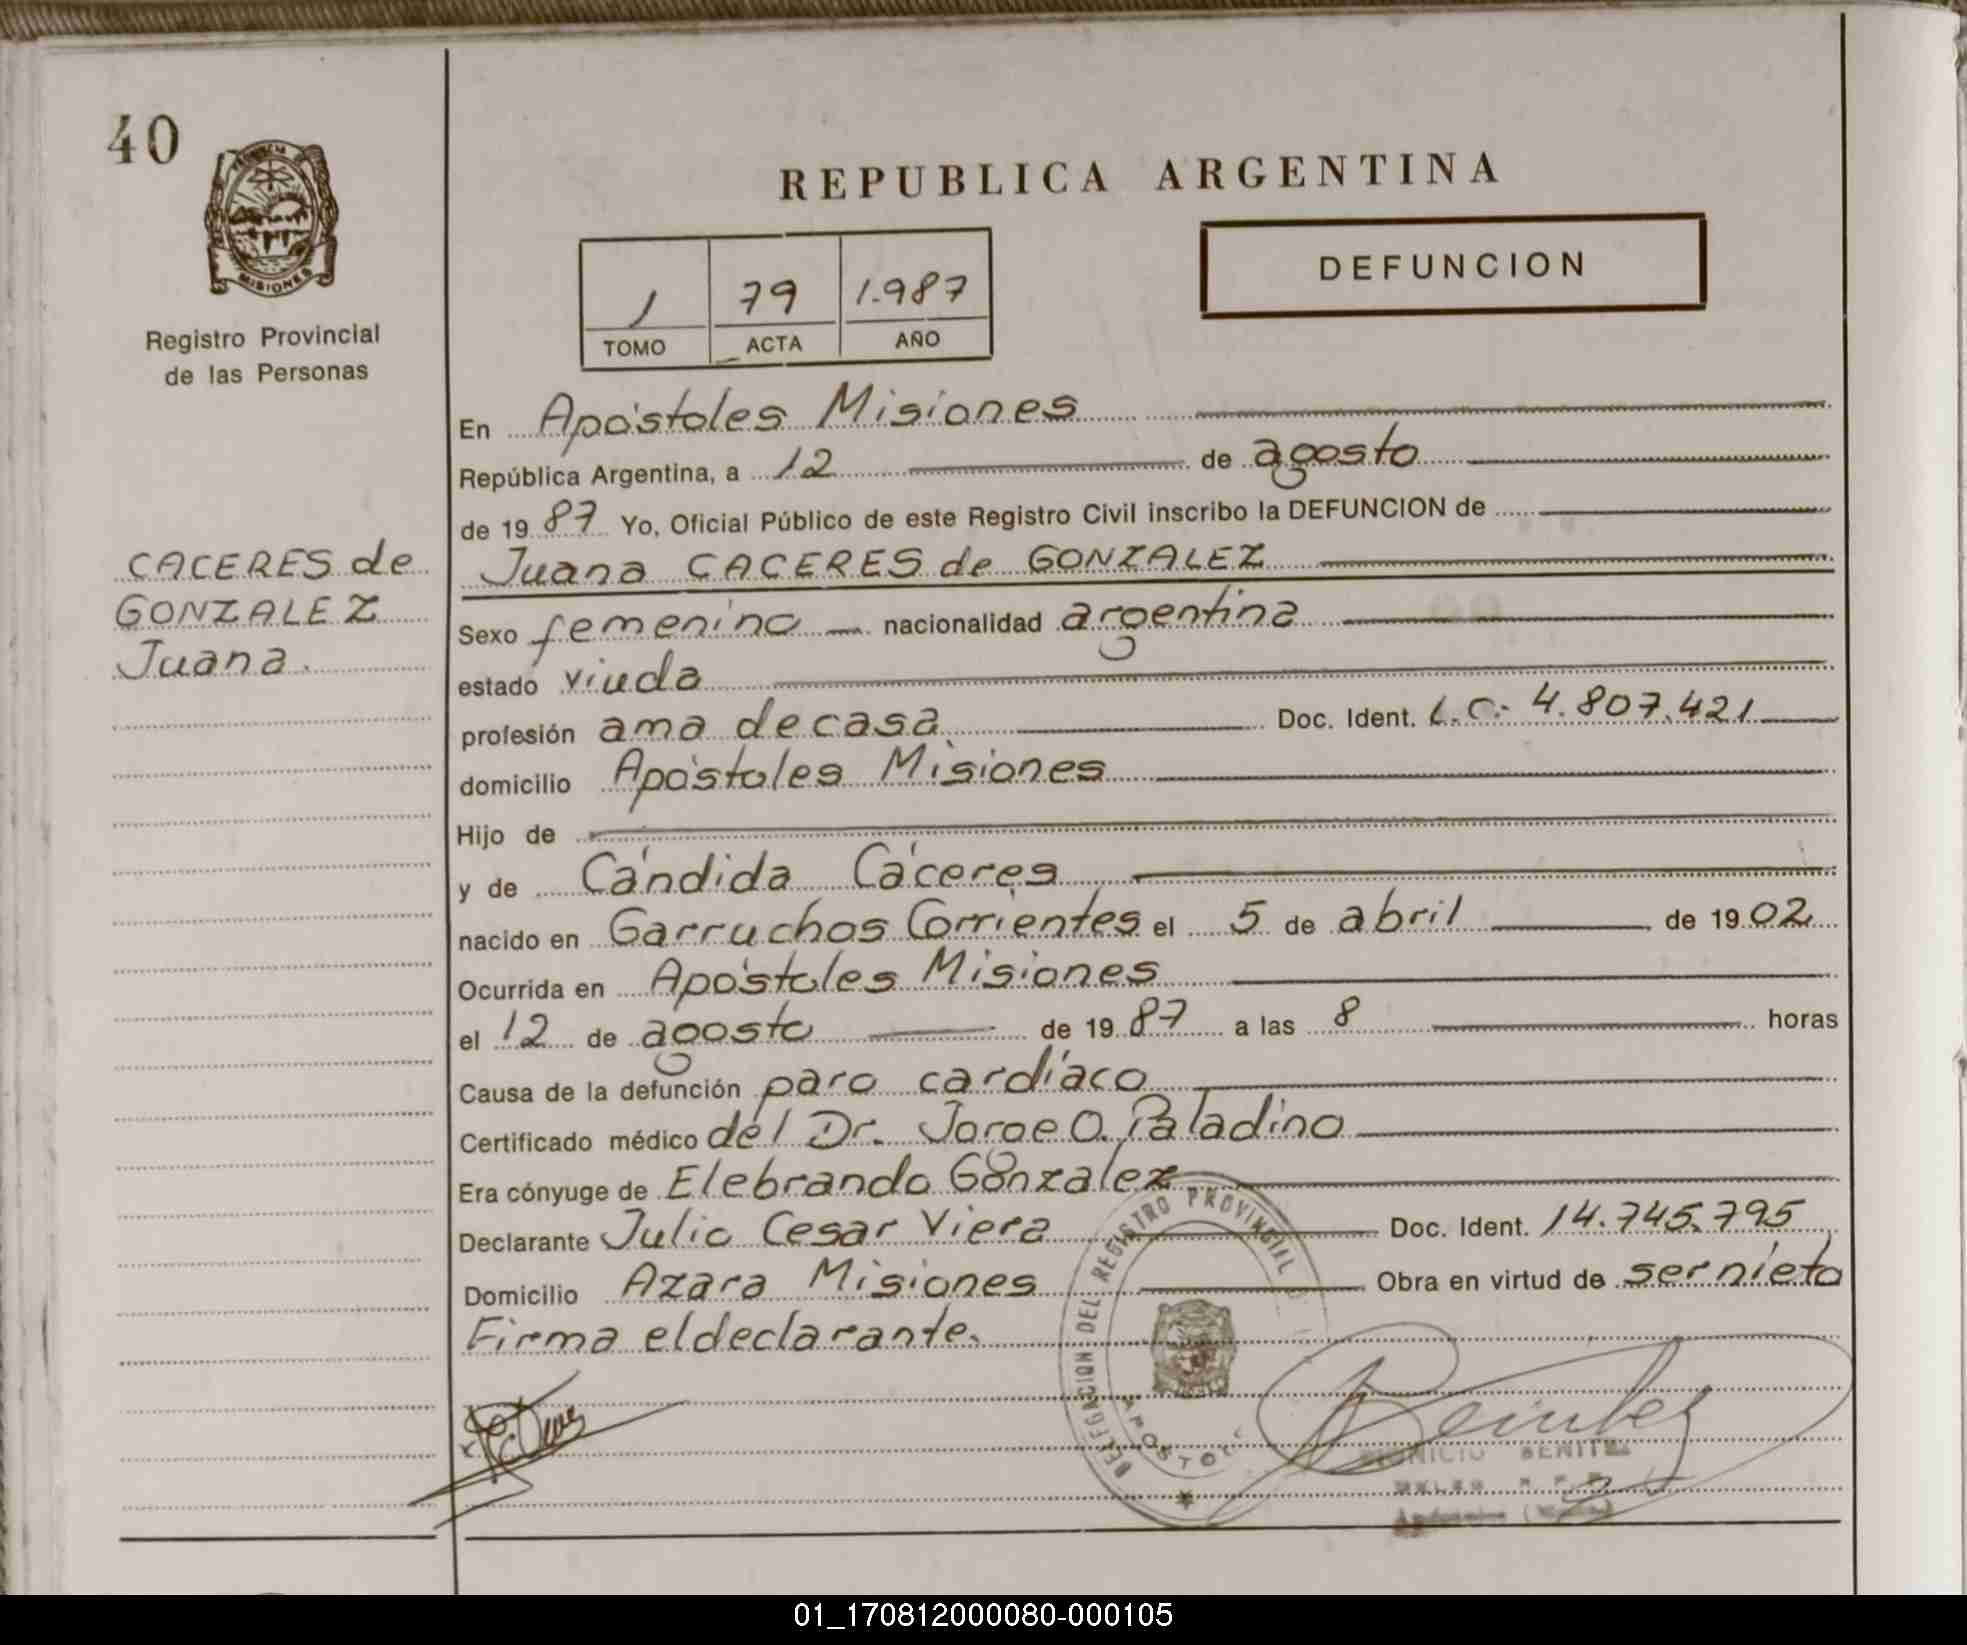 40
MISIONES
Registro Provincial
de las Personas
CACERES de
GONZALEZ
Juana.
REPUBLICA ARGENTINA
1 79 1.987
TOMO ACTA AÑO
DEFUNCION
En Apóstoles Misiones
República Argentina, a 12 de agosto
de 19 87 Yo, Oficial Público de este Registro Civil inscribo la DEFUNCION de
Juana CACERES de GONZALEZ
Sexo femenino nacionalidad argentina
estado viuda
profesión ama de casa Doc. Ident. L.C.- 4.807.421
domicilio Apóstoles Misiones
Hijo de
y de Cándida Cáceres
nacido en Garruchos Corrientes el 5 de abril de 19 02
Ocurrida en Apóstoles Misiones
el 12 de agosto de 19 87 a las 8 horas
Causa de la defunción paro cardíaco
Certificado médico del Dr. Jorge O. Paladino
Era cónyuge de Elebrando Gonzalez
Declarante Julio Cesar Viera Doc. Ident. 14.745.795
Domicilio Azara Misiones Obra en virtud de ser nieto
Firma el declarante.
DELEGACION DEL REGISTRO PROVINCIAL
APOSTOL
BENITEZ
01_170812000080-000105